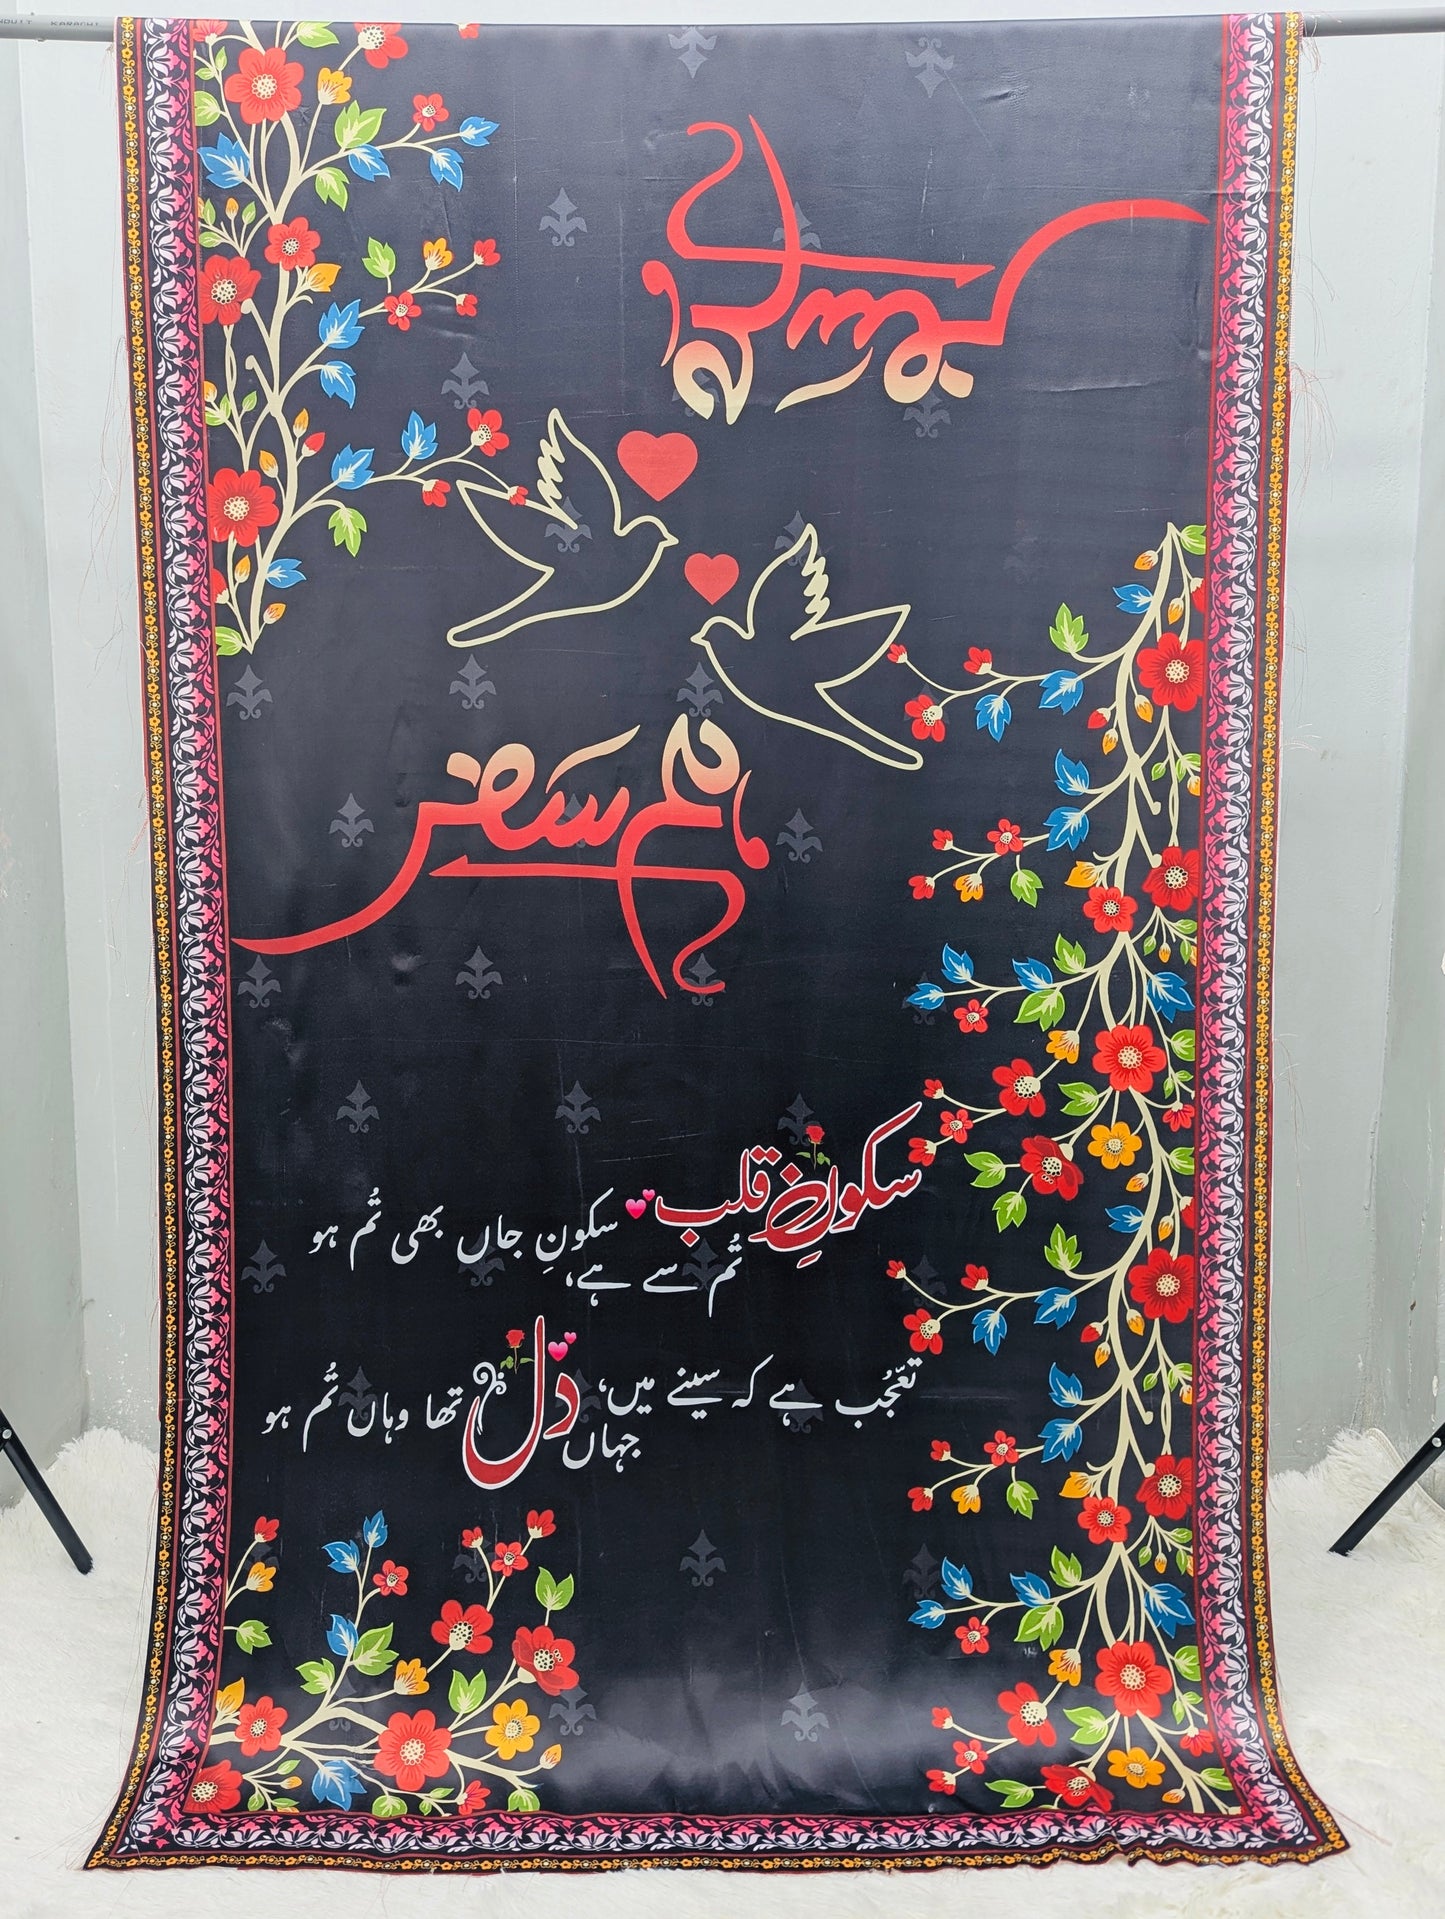 NDUIT KARACHI
ہم سفر
ہم سفر
سکونِ قلب تُم سے ہے، سکونِ جاں بھی تُم ہو
تعّجُب ہے کہ سینے میں، جہاں دل تھا وہاں تُم ہو